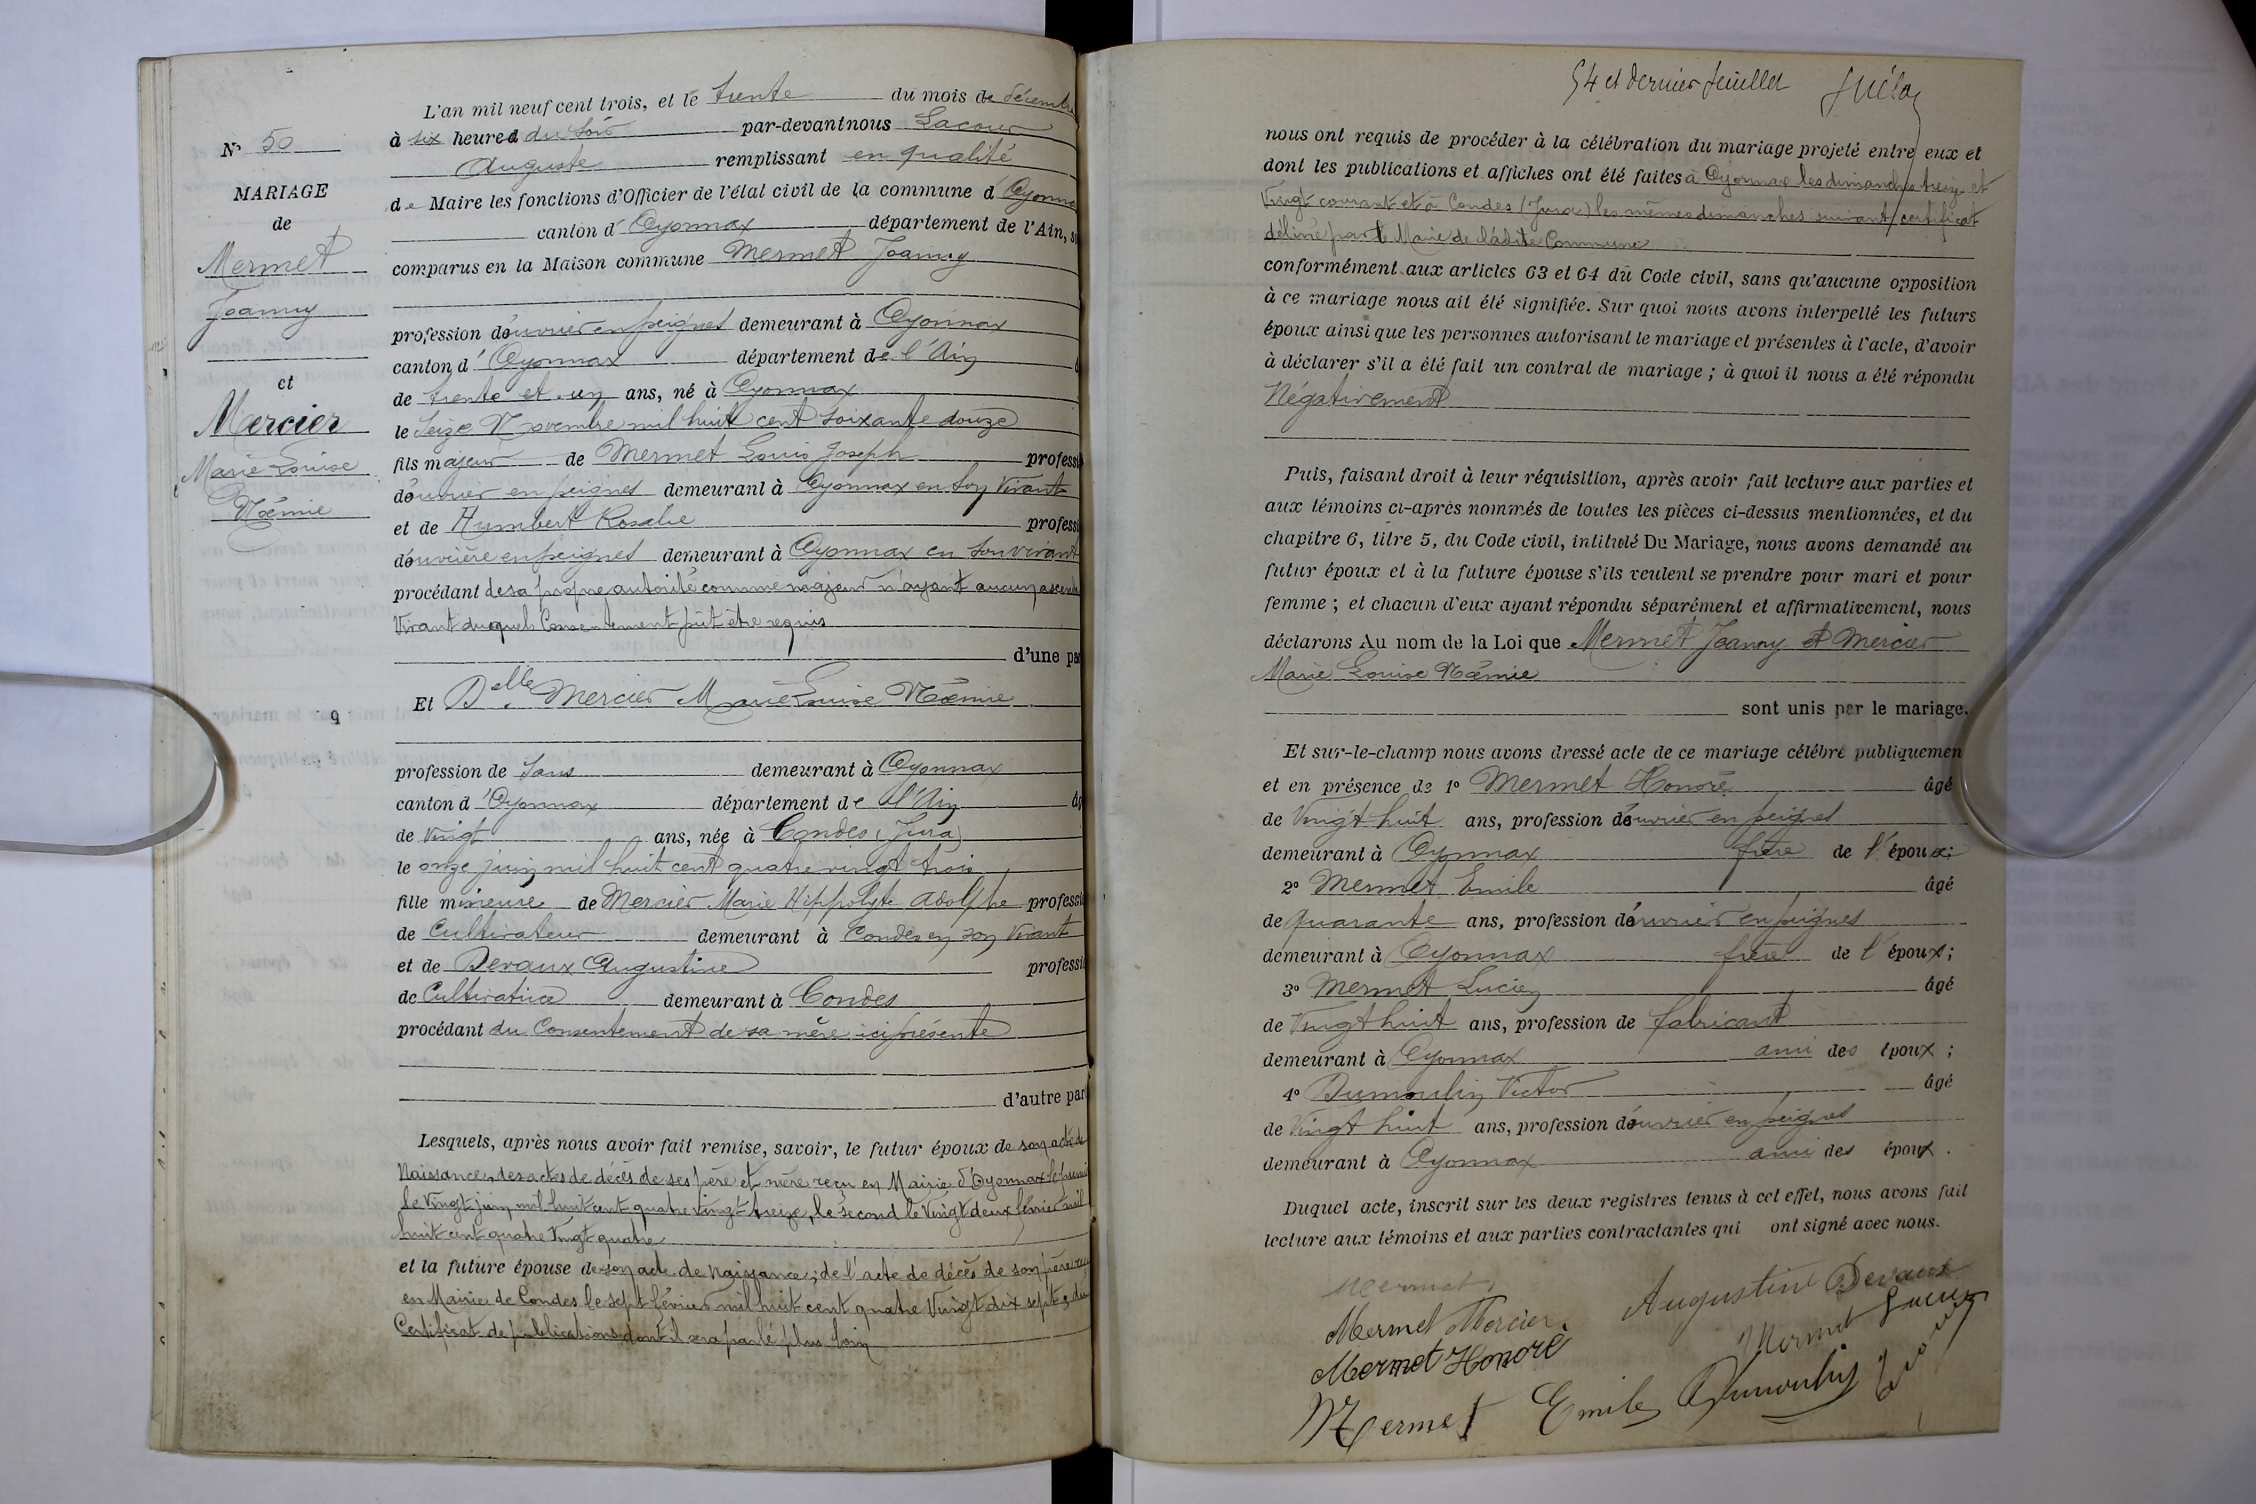 L'an mil neuf cent trois, et le trente du mois de décembre
à six heures du soir par-devant nous Lacour
Auguste remplissant en qualité
de Maire les fonctions d'Officier de l'état civil de la commune d'Oyonnax
canton d'Oyonnax département de l'Ain, s
comparus en la Maison commune Mermet Joanny
profession d'ouvrier en peignes demeurant à Oyonnax
canton d'Oyonnax département de l'Ain
de trente et un ans, né à Oyonnax
le seize Novembre mil huit cent soixante douze
fils majeur de Mermet Louis Joseph professi
d'ouvrier en peignes demeurant à Oyonnax en son vivant
et de Humbert Rosalie professi
d'ouvrière en peignes demeurant à Oyonnax en son vivant
procédant de sa propre autorité comme majeur n'ayant aucun ascend
vivant duquel consentement put être requis
d'une pa
Et Delle Mercier Marie Louise Noémie
profession de sans demeurant à Oyonnax
canton d'Oyonnax département de l'Ain âg
de vingt ans, née à Condes (Jura)
le onze juin mil huit cent quatre vingt trois
fille mineure de Mercier Marie Hippolyte Adolphe professi
de Cultivateur demeurant à Condes en son vivant
et de Devaux Augustine professi
de Cultivatrice demeurant à Condes
procédant du consentement de sa mère ici présente
d'autre par
Lesquels, après nous avoir fait remise, savoir, le futur époux de son acte de
Naissance, des actes de décès de ses père et mère reçu en Mairie d'Oyonnax le premier
le vingt juin mil huit cent quatre vingt treize, le second le vingt deux février mil
huit cent quatre vingt quatre
et la future épouse de son acte de naissance, de l'acte de décès de son père reçu
en Mairie de Condes le sept février mil huit cent quatre vingt dix sept, du
Certificat de publications dont il sera parlé plus loin
No 50
MARIAGE
de
Mermet
Joanny
et
Mercier
Marie Louise
Noémie
9
54 et dernier feuillet
nous ont requis de procéder à la célébration du mariage projeté entre eux et
dont les publications et affiches ont été faites à Oyonnax les dimanches treize et
vingt courant et à Condes (Jura) les mêmes dimanches suivant certificat
délivré par le Maire de ladite Commune
conformément aux articles 63 et 64 du Code civil, sans qu'aucune opposition
à ce mariage nous ait été signifiée. Sur quoi nous avons interpellé les futurs
époux ainsi que les personnes autorisant le mariage et présentes à l'acte, d'avoir
à déclarer s'il a été fait un contrat de mariage ; à quoi il nous a été répondu
Négativement
Puis, faisant droit à leur réquisition, après avoir fait lecture aux parties et
aux témoins ci-après nommés de toutes les pièces ci-dessus mentionnées, et du
chapitre 6, titre 5, du Code civil, intitulé Du Mariage, nous avons demandé au
futur époux et à la future épouse s'ils veulent se prendre pour mari et pour
femme ; et chacun d'eux ayant répondu séparément et affirmativement, nous
déclarons Au nom de la Loi que Mermet Joanny et Mercier
Marie Louise Noémie
sont unis par le mariage.
Et sur-le-champ nous avons dressé acte de ce mariage célébré publiquemen
et en présence de 1o Mermet Honoré âgé
de vingt huit ans, profession d'ouvrier en peignes
demeurant à Oyonnax frère de l'époux;
2o Mermet Emile âgé
de quarante ans, profession d'ouvrier en peignes
demeurant à Oyonnax frère de l'époux;
3o Mermet Lucien âgé
de vingt huit ans, profession de fabricant
demeurant à Oyonnax ami des époux ;
4o Dumoulin Victor âgé
de vingt huit ans, profession d'ouvrier en peignes
demeurant à Oyonnax ami des époux .
Duquel acte, inscrit sur les deux registres tenus à cet effet, nous avons fait
lecture aux témoins et aux parties contractantes qui ont signé avec nous.
Mermet,
Augustine Devaux
Mermet Mercier.
Mermet Lucien
Mermet Honoré
Mermet Emile Dumoulin